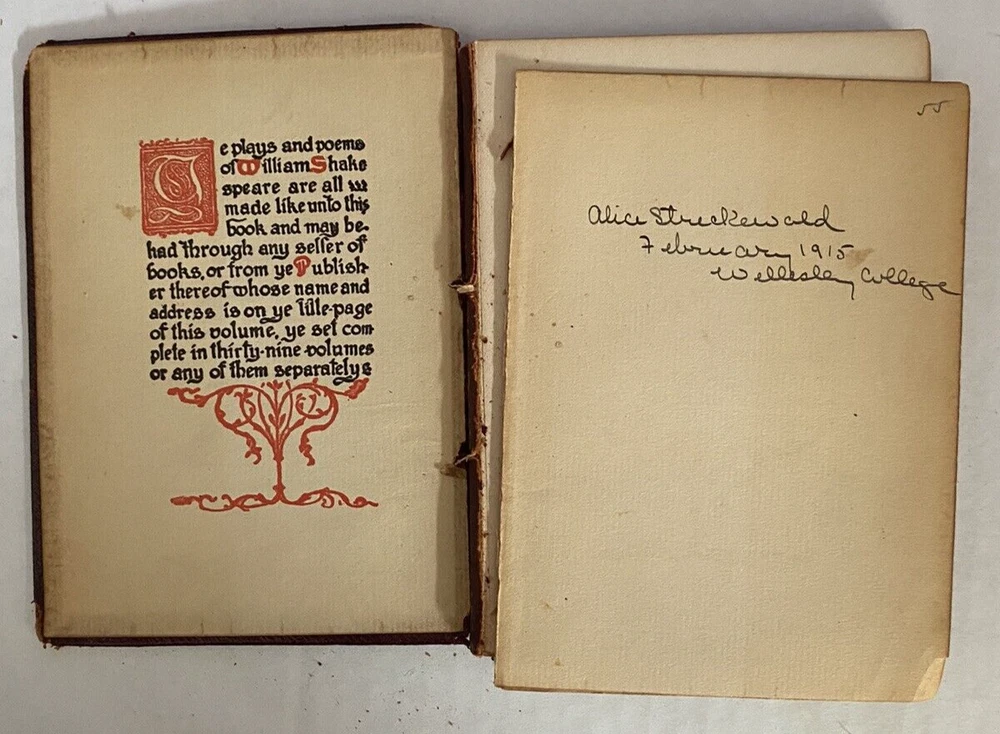 Ye plays and poems
of William Shake
speare are all
made like unto this
book and may be
had through any seller of
books, or from ye Publish-
er thereof whose name and
address is on ye title-page
of this volume, ye set com
plete in thirty-nine volumes
or any of them separately
55
Alice Streckewald
February 1915
Wellesley College